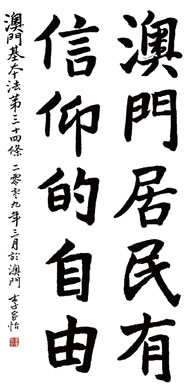 澳門居民有
信仰的自由
澳門基本法第三十四條 二零零九年三月於澳門 李家怡